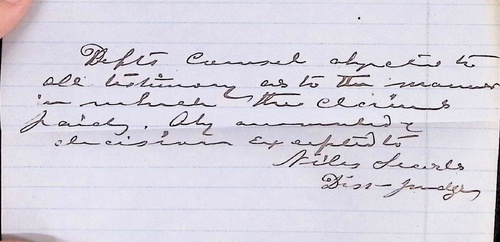 Defts Counsel objected to
all testimony as to the manner
in which the claims
paid. Obj overruled &
decision excepted to
Niles Searls
Dist Judge